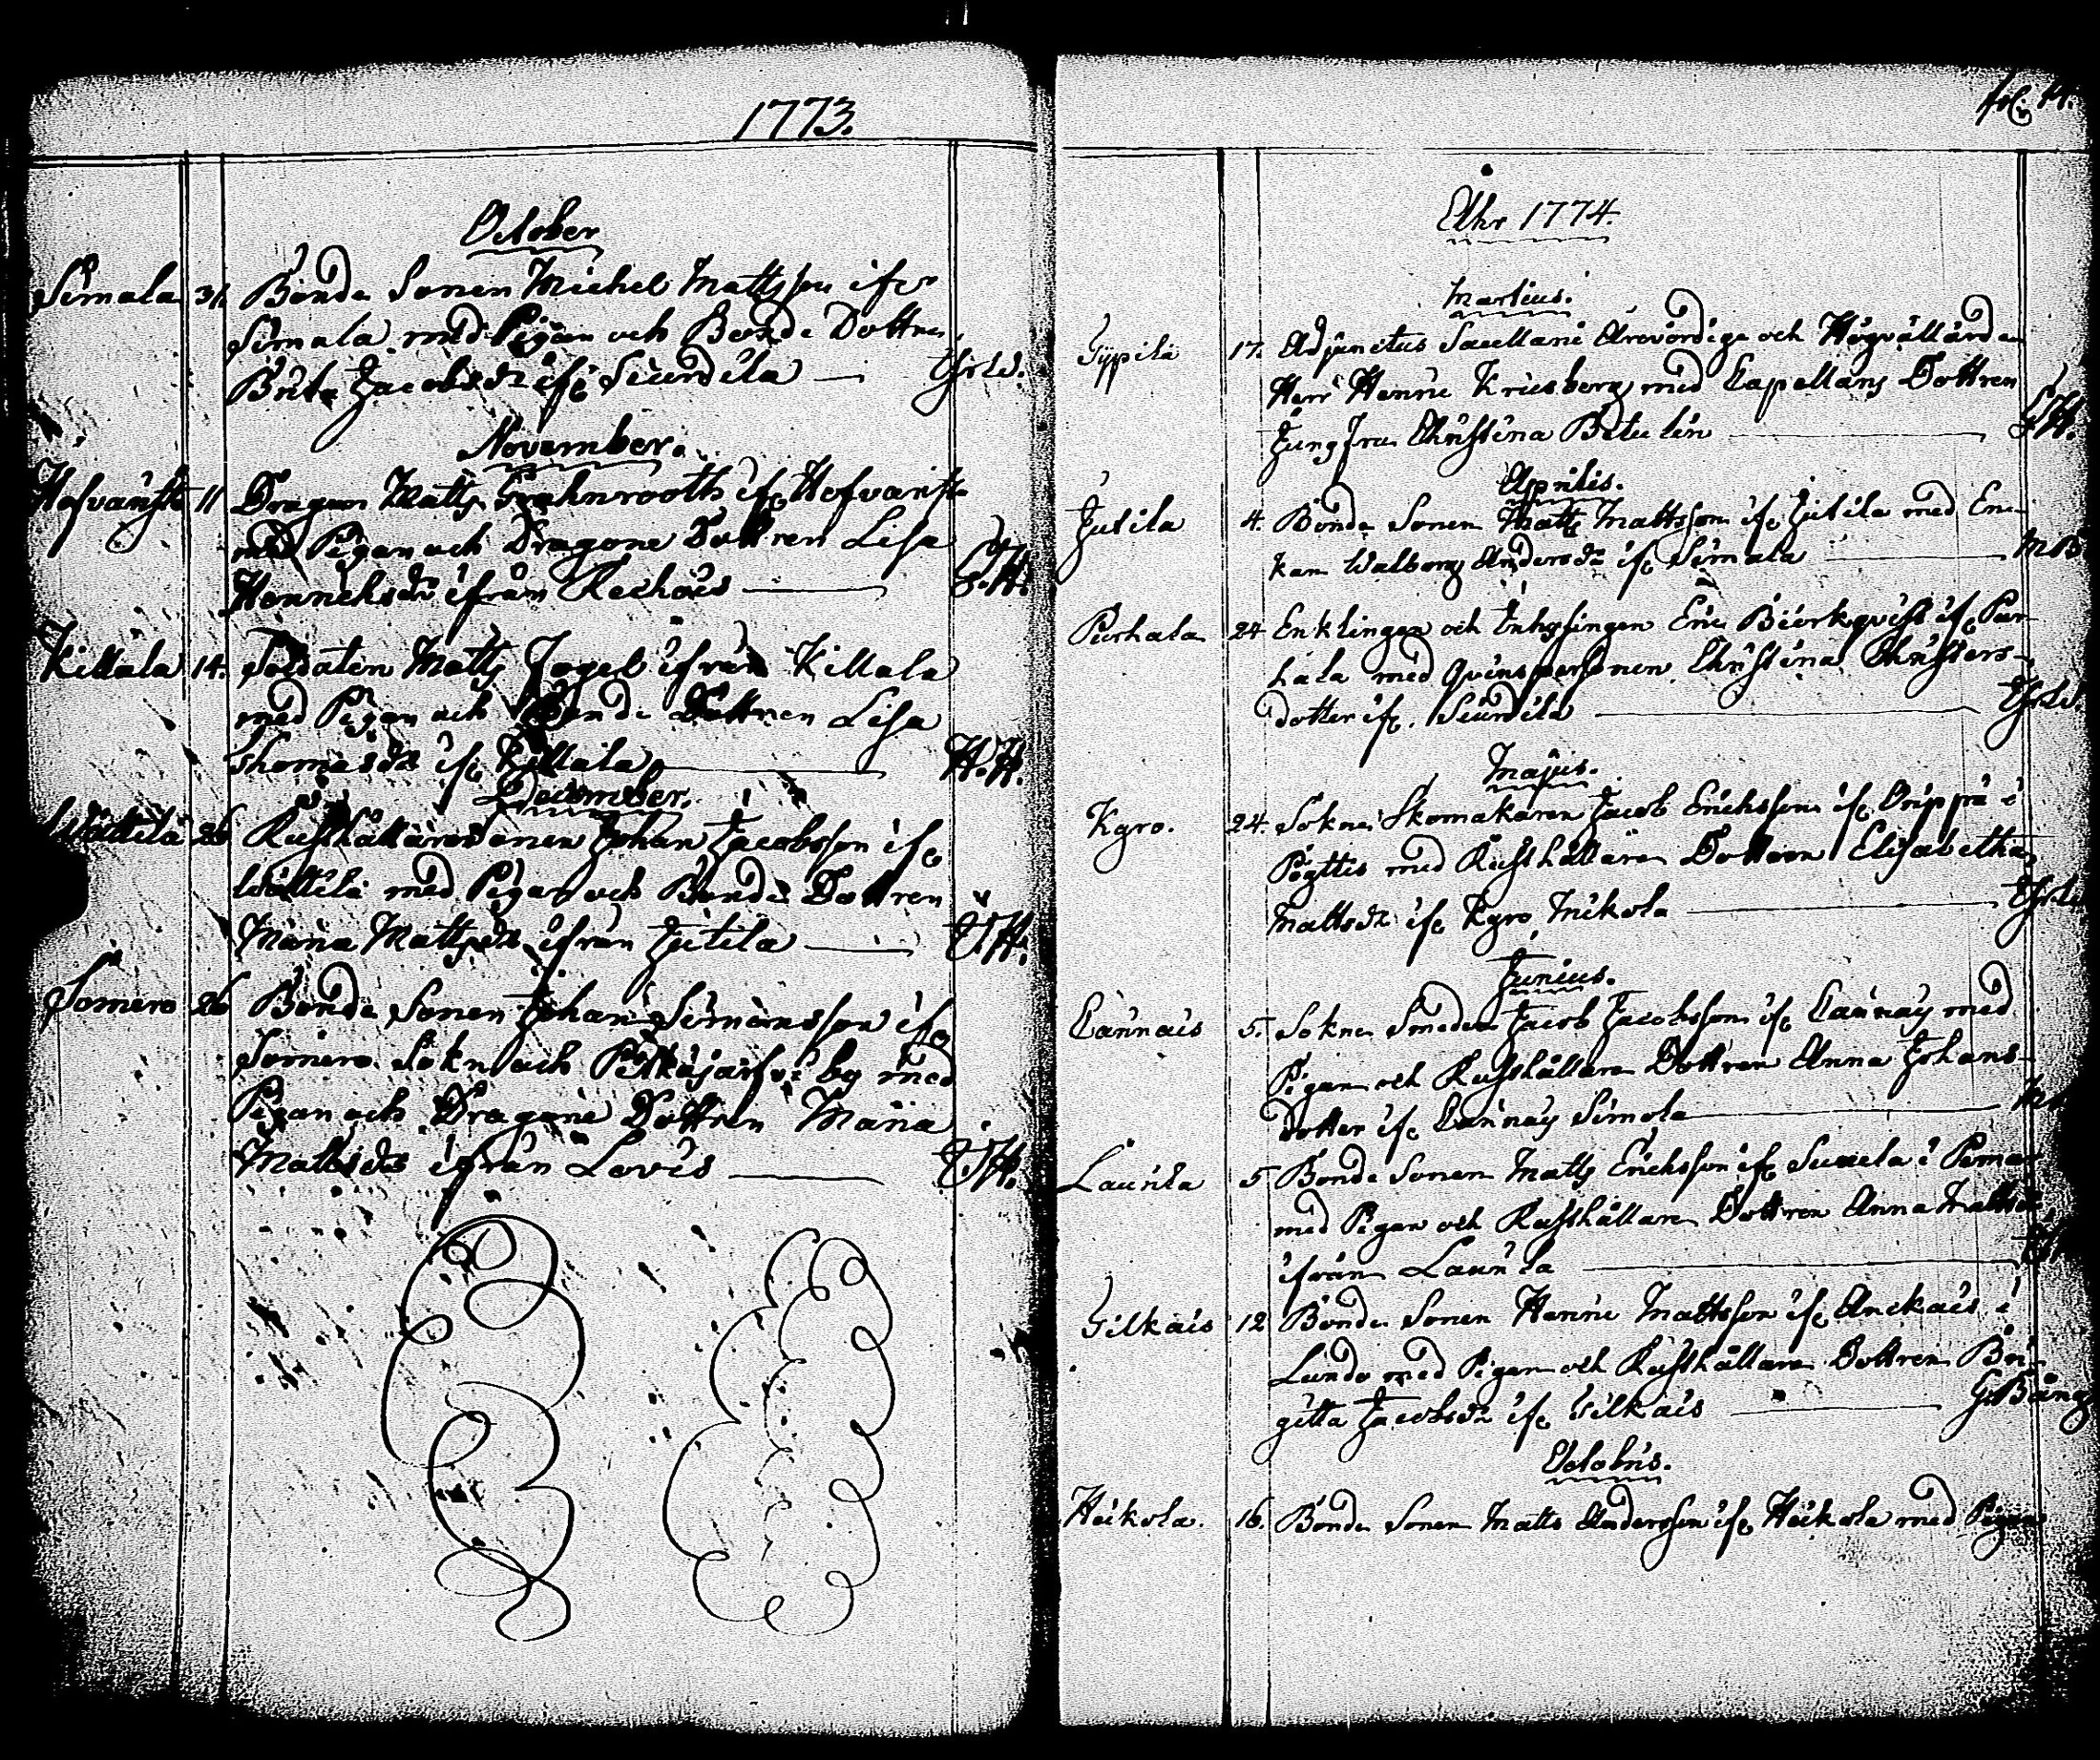 1773.
October
Simala 31. Bonde Sonen Michel Mattsson ifr
Simala med Pigan och Bonde Dottren
Brita Jacobsdr ifr Siurdila —
November.
Hofvanstt 11 Dragon Matts Grahnrooth ifr Hofvanst
med Pigan och Dragone Dottren Lisa
Hennichsdr ifrån Rechois — G.H.
Killala 14. Soldaten Matts Jogel ifrån Killala
med Pigan och Bonde Dottren Lisa
Thomasdr ifr Killala — H.H.
December.
Wättilä 26 Rusthållare Sonen Johan Jacobsson ifr
Wättilä med Pigan och Bonde Dottren
Maria Mattsdr ifrån Jutila —
Somero 26 Bonde Sonen Johan Simonsson ifr
Somero Sokn och Pitkäjärfvi by med
Pigan och Dragone Dottren Maria
Mattsdr ifrån Lovis —
fol. 14.
Åhr 1774.
Martius.
Gypilä 17. Adjunctus Sacellani Ärevördige och Högvällärde
Herr Henric Kriisberg med Capellans Dottren
Jungfru Christina Betulin — G.H.
Aprilis.
Jutila 4. Bonde Sonen Matts Mattsson ifr Jutila med En-
kan Walborg Andersdr ifr Simala — MB
Purhala 24 Enklingen och Inhysingen Eric Biörkqvist ifr Pur-
hala med Qvinspersonen Christina Christers-
dotter ifr. Siurdila —
Majus.
Kyro. 24. Sokne Skomakaren Jacob Erichsson ifr Krippå i
Pöyttis med Rusthållare Dottren Elisabetha
Mattsdr ifr Kyro Mikola —
Junius.
Carinais 5. Sokne Smeden Jacob Jacobsson ifr Carinais med
Pigan och Rusthållare Dottren Anna Johans-
dotter ifr Carinais Simola —
Laurila 5 Bonde Sonen Matts Erichsson ifr Suxela i Pemar
med Pigan och Rusthållare Dottren Anna Mattsdr
ifrån Laurila —
Gilkais 12 Bonde Sonen Henric Mattsson ifr Anckais i
Lundo med Pigan och Rusthållare Dottren Bri-
gitta Jacobsdr ifr Gilkais — G. Bång
Octobris.
Heikola. 16. Bonde Sonen Matts Andersson ifr Heikola med Pigan